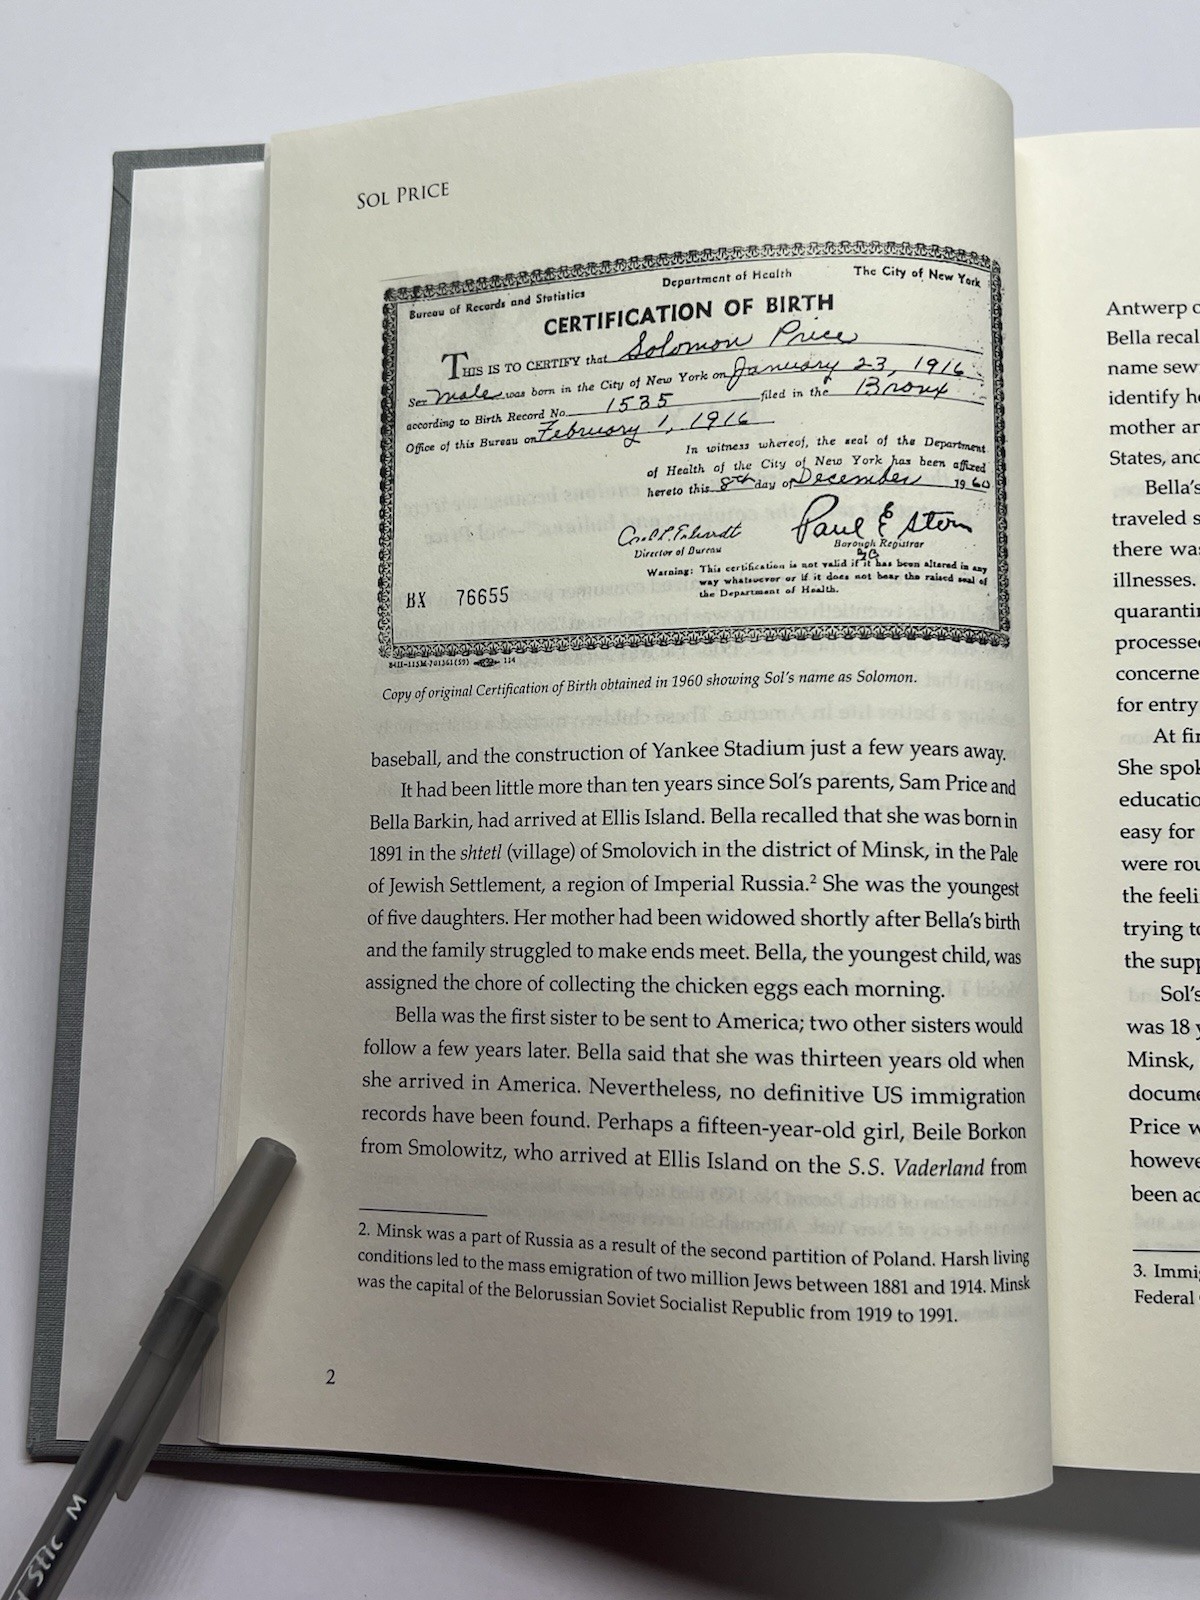 SOL PRICE
Bureau of Records and Statistics Department of Health The City of New York
CERTIFICATION OF BIRTH
THIS IS TO CERTIFY that Solomon Price
Sex Male was born in the City of New York on January 23, 1916
according to Birth Record No. 1535 filed in the Bronx
Office of this Bureau on February 1, 1916
In witness whereof, the seal of the Department
of Health of the City of New York has been affixed
hereto this 8th day of December 1960
Paul E Stern
Director of Bureau Borough Registrar
Warning: This certification is not valid if it has been altered in any
way whatsoever or if it does not bear the raised seal of
the Department of Health.
BX 76655
114
Copy of original Certification of Birth obtained in 1960 showing Sol's name as Solomon.
baseball, and the construction of Yankee Stadium just a few years away.
It had been little more than ten years since Sol's parents, Sam Price and
Bella Barkin, had arrived at Ellis Island. Bella recalled that she was born in
1891 in the shtetl (village) of Smolovich in the district of Minsk, in the Pale
of Jewish Settlement, a region of Imperial Russia.2 She was the youngest
of five daughters. Her mother had been widowed shortly after Bella's birth
and the family struggled to make ends meet. Bella, the youngest child, was
assigned the chore of collecting the chicken eggs each morning.
Bella was the first sister to be sent to America; two other sisters would
follow a few years later. Bella said that she was thirteen years old when
she arrived in America. Nevertheless, no definitive US immigration
records have been found. Perhaps a fifteen-year-old girl, Beile Borkon
from Smolowitz, who arrived at Ellis Island on the S.S. Vaderland from
2. Minsk was a part of Russia as a result of the second partition of Poland. Harsh living
conditions led to the mass emigration of two million Jews between 1881 and 1914. Minsk
was the capital of the Belorussian Soviet Socialist Republic from 1919 to 1991.
2
Antwerp
Bella
name
identify
mother
States,
Bella's
traveled
there
illnesses.
for entry
At
She
easy for
were
the
trying
the
was 18
Minsk,
Price
been
3.
Federal
Stic M